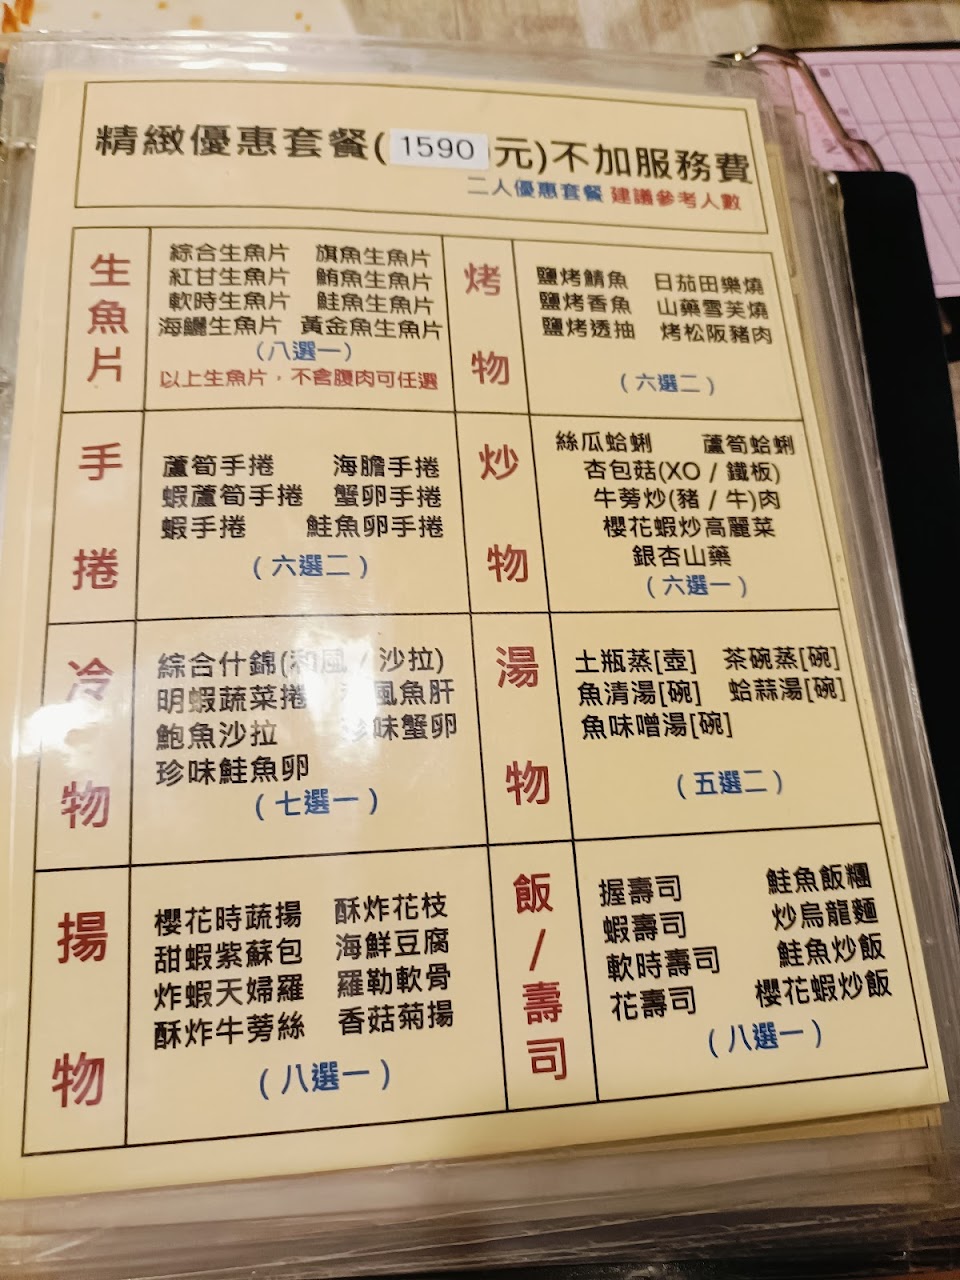 精緻優惠套餐(1590元)不加服務費
二人優惠套餐 建議參考人數
生魚片
綜合生魚片 旗魚生魚片
紅甘生魚片 鮪魚生魚片
軟時生魚片 鮭魚生魚片
海鱺生魚片 黃金魚生魚片
(八選一)
以上生魚片，不含腹肉可任選
烤物
鹽烤鯖魚 日茄田樂燒
鹽烤香魚 山藥雪芙燒
鹽烤透抽 烤松阪豬肉
(六選二)
手捲
蘆筍手捲 海膽手捲
蝦蘆筍手捲 蟹卵手捲
蝦手捲 鮭魚卵手捲
(六選二)
炒物
絲瓜蛤蜊 蘆筍蛤蜊
杏包菇(XO / 鐵板)
牛蒡炒(豬 / 牛)肉
櫻花蝦炒高麗菜
銀杏山藥
(六選一)
冷物
綜合什錦(和風 / 沙拉)
明蝦蔬菜捲 風魚肝
鮑魚沙拉 珍味蟹卵
珍味鮭魚卵
(七選一)
湯物
土瓶蒸[壺] 茶碗蒸[碗]
魚清湯[碗] 蛤蒜湯[碗]
魚味噌湯[碗]
(五選二)
揚物
櫻花時蔬揚 酥炸花枝
甜蝦紫蘇包 海鮮豆腐
炸蝦天婦羅 羅勒軟骨
酥炸牛蒡絲 香菇菊揚
(八選一)
飯/壽司
握壽司 鮭魚飯糰
蝦壽司 炒烏龍麵
軟時壽司 鮭魚炒飯
花壽司 櫻花蝦炒飯
(八選一)